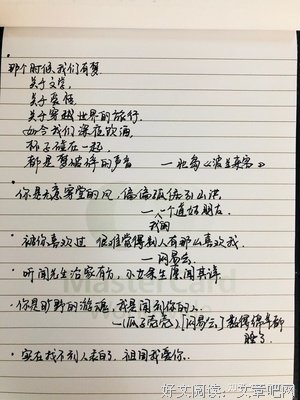 那个时候，我们有梦.
关于文学，
关于爱情
关于穿越世界的旅行.
如今我们深夜饮酒
杯子碰在一起，
都是梦破碎的声音 —北岛《波兰来客》
· 你是无意穿堂的风，偏偏孤倨引山洪.
—一个道好朋友.
我的
· 被你喜欢过 很难觉得别人有那么喜欢我.
—网易云.
· 听闻先生治家有方，小女余生愿闻其详.
· 你是旷野的游魂，我是闻到你的人.
—(瓜了壳壳)[网易云]
睡了.
· 实在找不到人表白了，祖国我爱你.
MasterCard
好文阅读：文章吧网